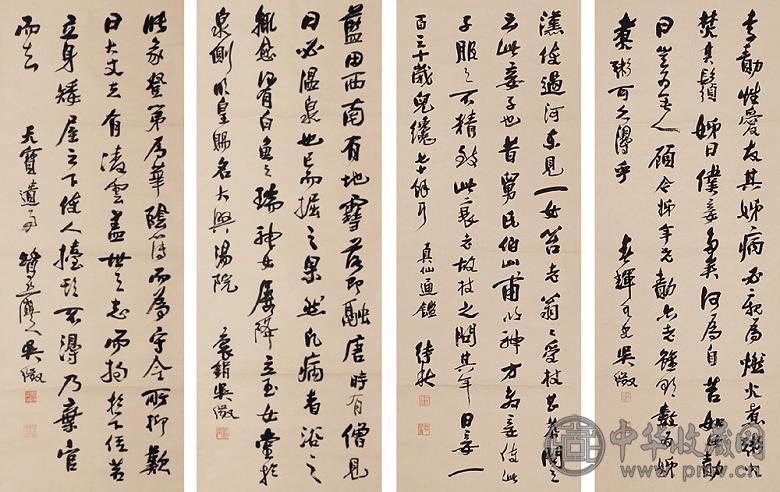 李勣性愛友其姊病必親為燃火煮粥火
焚其鬚姊曰僕妾多矣何為自苦如此勣
曰豈為無人顧今姊年老勣亦老雖欲數為姊
煮粥可久得乎
春輝 吳徵
漢使過河東見一女笞老翁翁受杖甚恭問之
云此妾子也昔舅氏伯山甫以神方教妾使此
子服之不 致此衰老故杖之問其年曰妾一
百三十歲兒纔七十餘耳 真仙通鑑 待秋
藍田西南有地雪落即融唐時有僧見
曰必溫泉也已而掘之果然凡病者浴之
輒愈 有白魚之瑞神女屢降立玉女堂於
泉側明皇賜名大興湯院 袌鋗吳徵
張彖登第為華陰簿而為守令所抑歎
曰大丈夫有凌雲蓋世之志而拘於下位若
立身矮屋之下使人擡頭不得乃棄官
而去 天寶遺事 鷺絲灣人吳徵
中华收藏网
pmw.cn